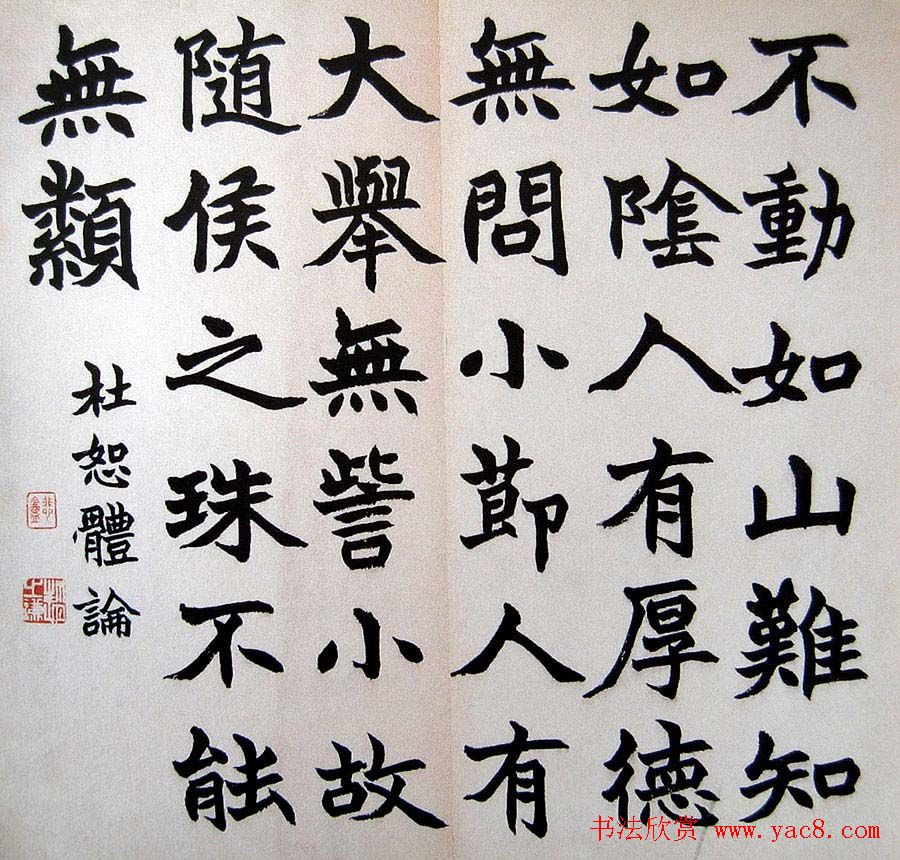 不動如山難知
如陰人有厚德
無問小節人有
大舉無訾小故
隨侯之珠不能
無纇
杜恕體論
书法欣赏 www.yac8.com